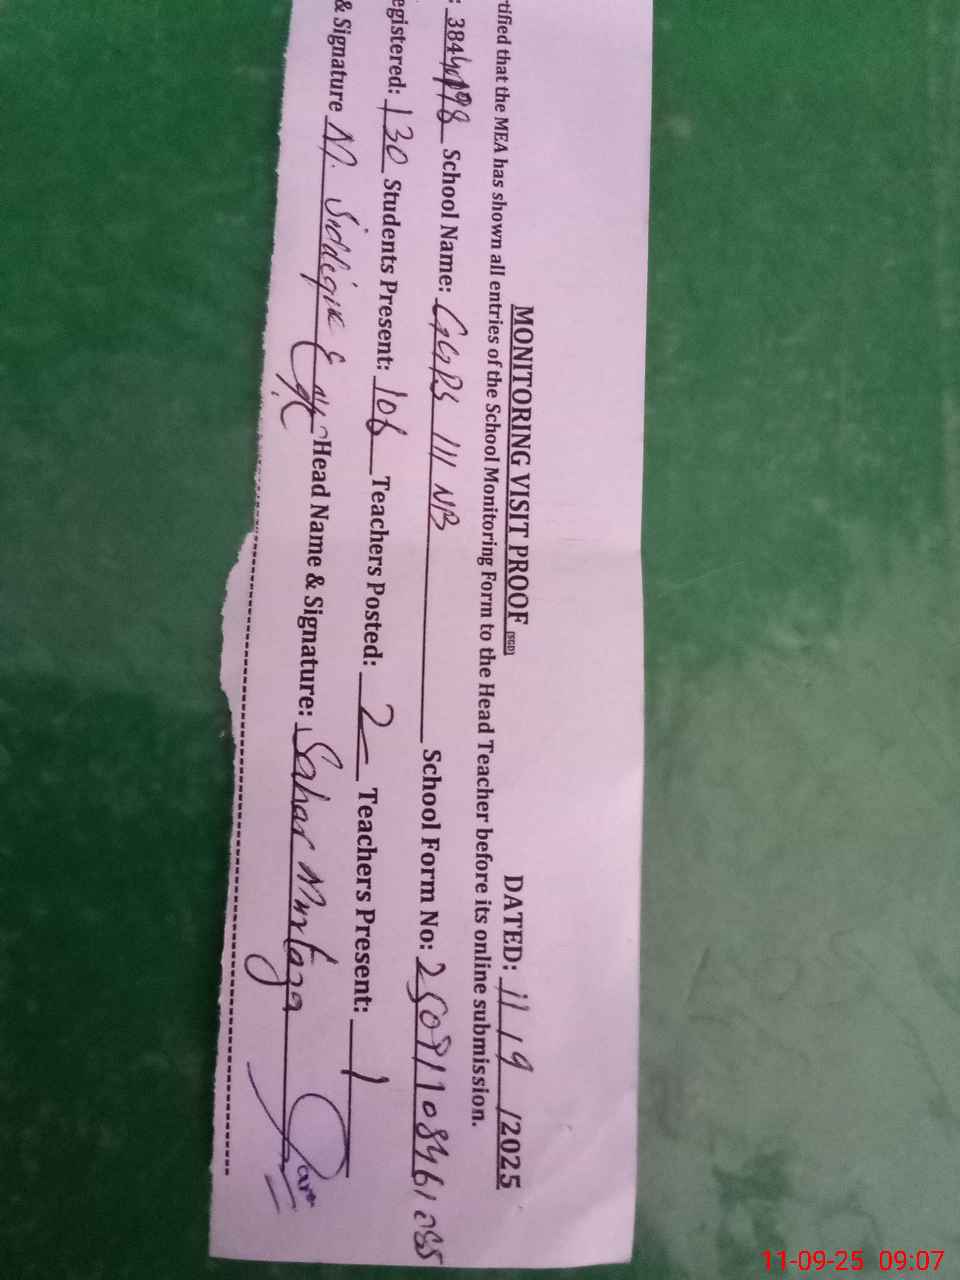 MONITORING VISIT PROOF (SGD) DATED: 11/9/2025
rtified that the MEA has shown all entries of the School Monitoring Form to the Head Teacher before its online submission.
: School Name: GGPS 111 NB School Form No:
egistered: 130 Students Present: 106 Teachers Posted: 2 Teachers Present: 1
& Signature M. Siddique Head Name & Signature: Sahar Murtaza
11-09-25 09:07